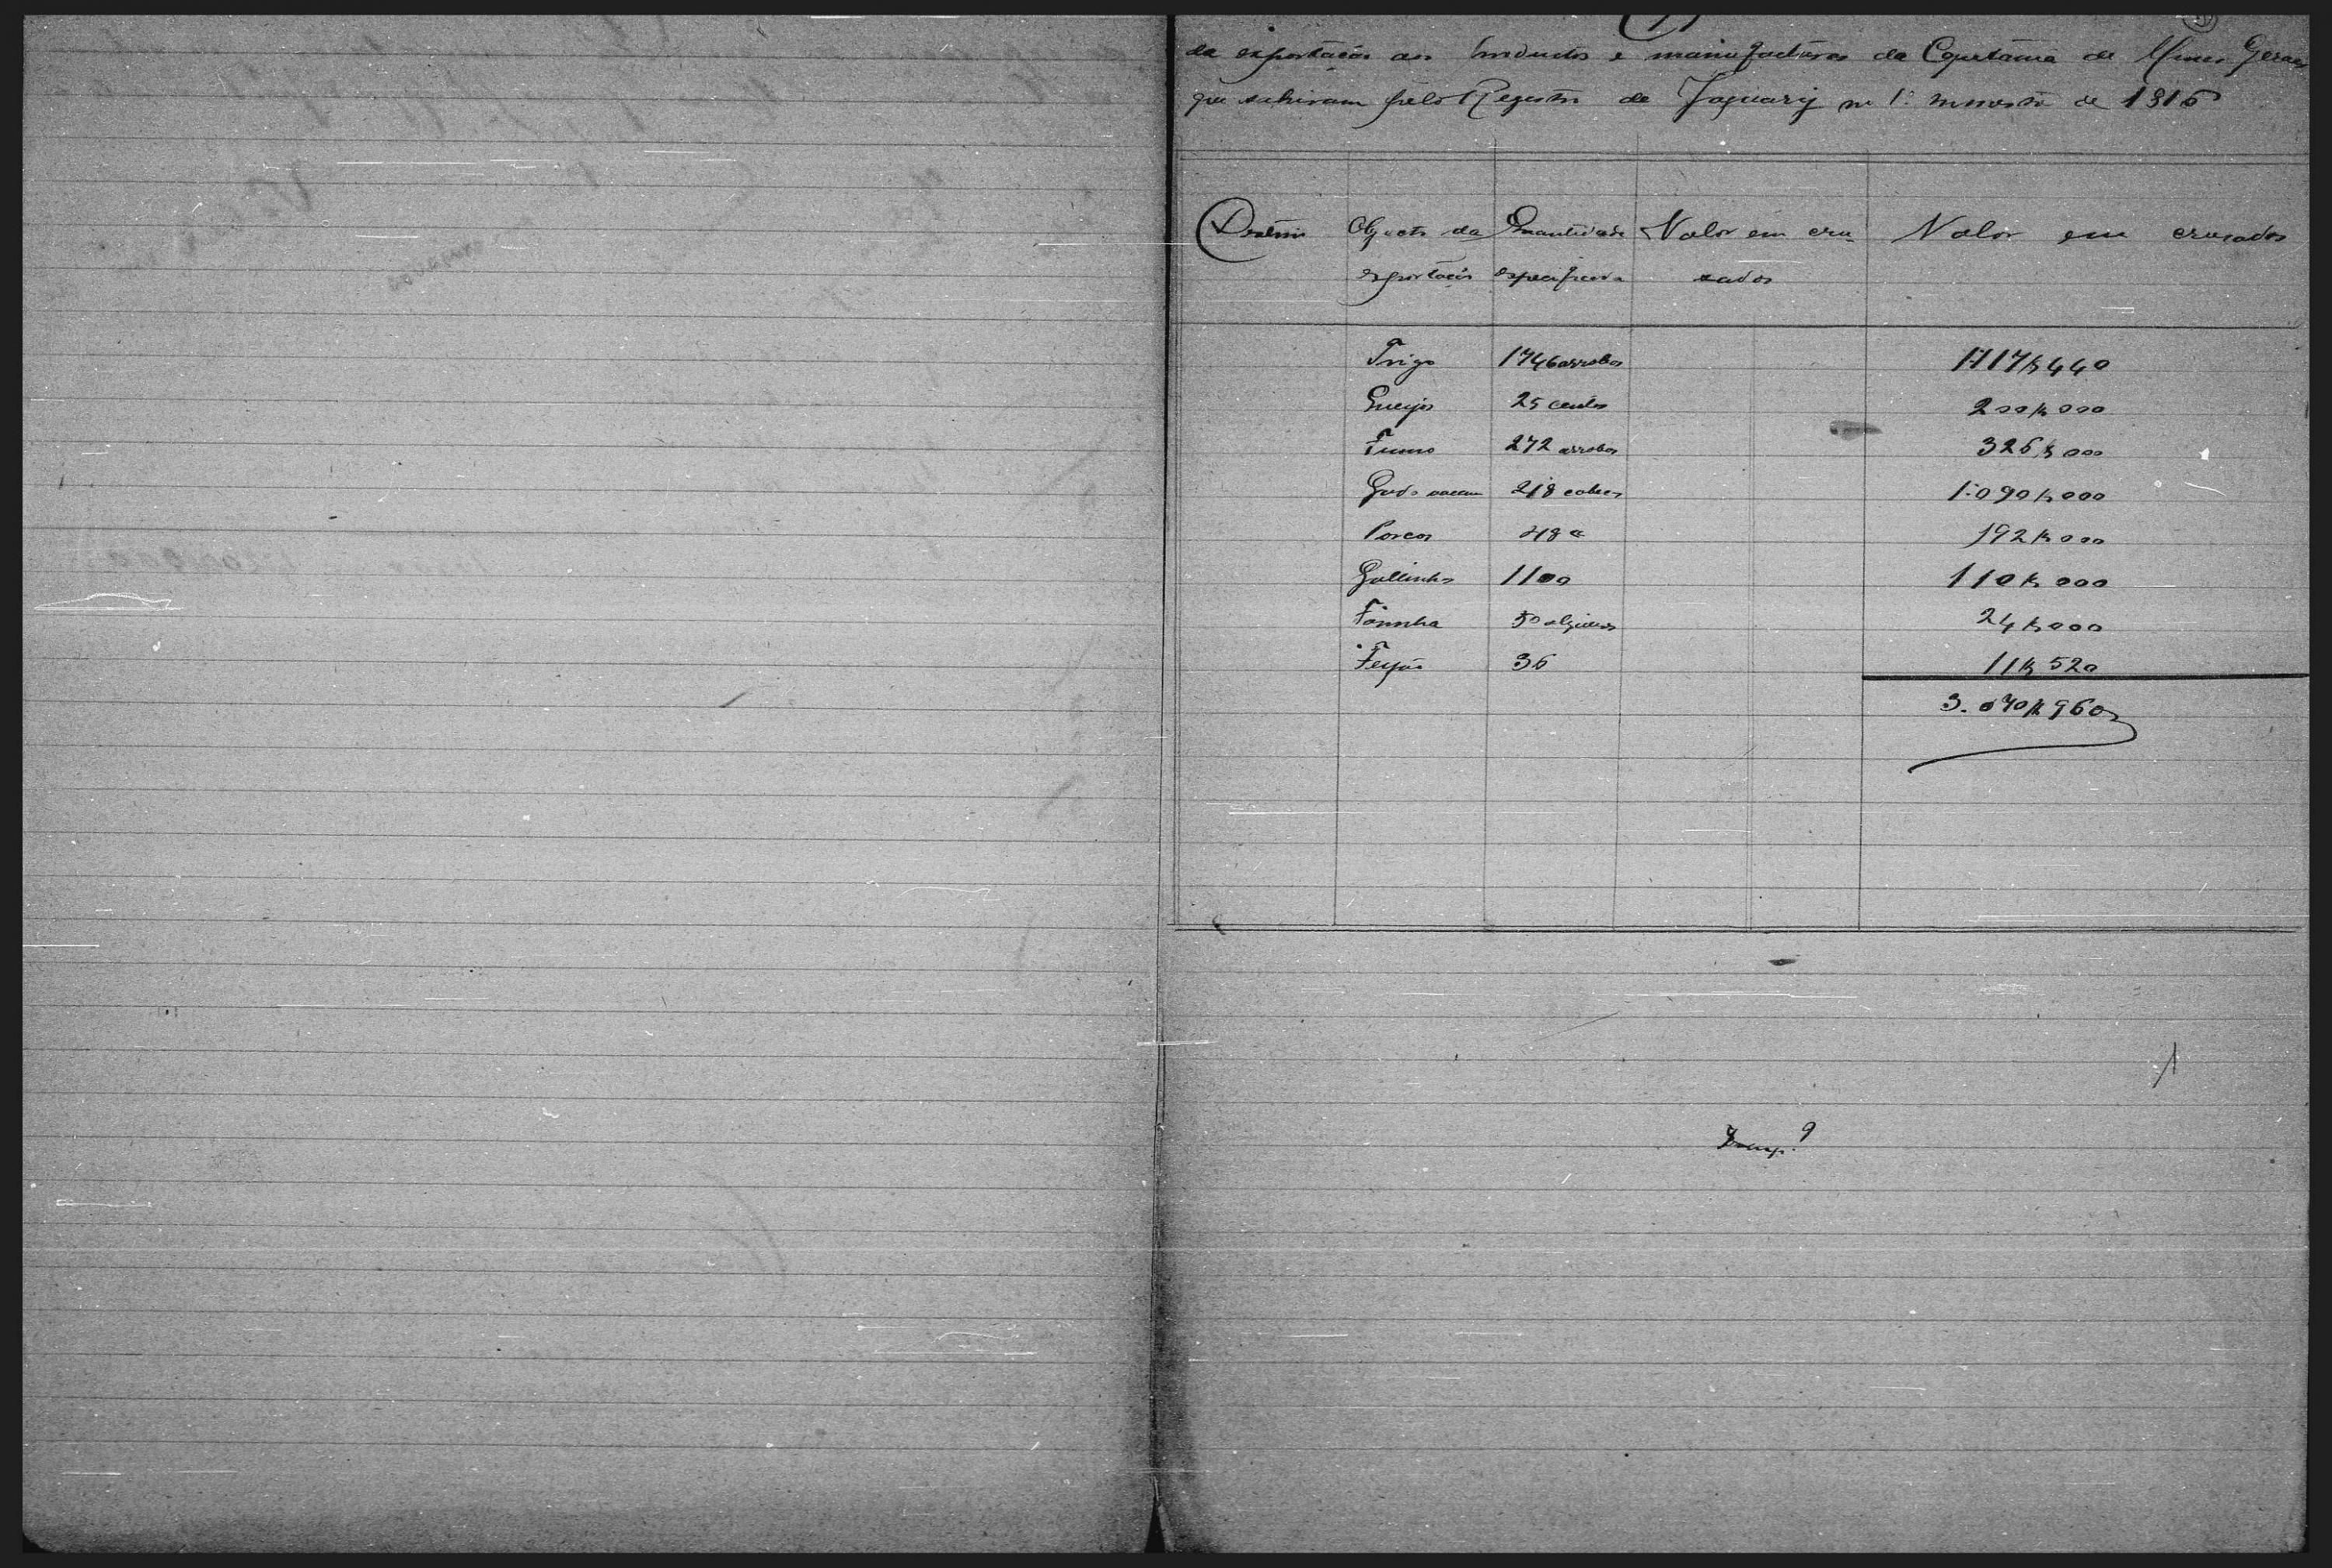 da exportação dos productos e manufacturas da Capitania de Minas Geraes
que sahiram pelo Registro de Jaguary no 1º semestre de 1816
Destino Objecto da Quantidade Valor em cru- Valor em crusados
exportação especificada sados
Trigo 1746 arrobas 1:117$440
Queijos 25 centos 200$000
Fumo 272 arrobas 326$000
Gado vaccum 218 cabeças 1:090$000
Porcos 48 " 192$000
Gallinhas 1100 110$000
Farinha 50 alqueires 24$000
Feijão 36 11$520
3.070$960